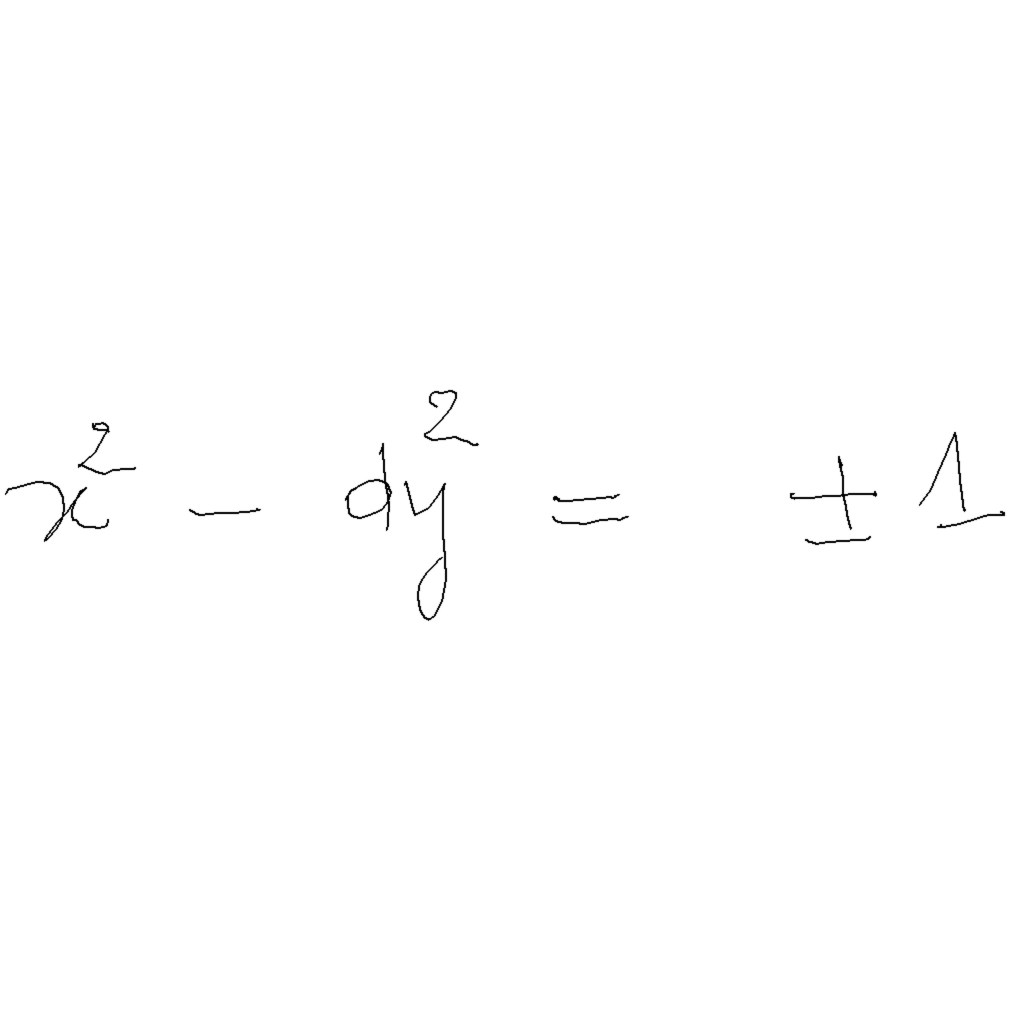 x² - dy² = ± 1